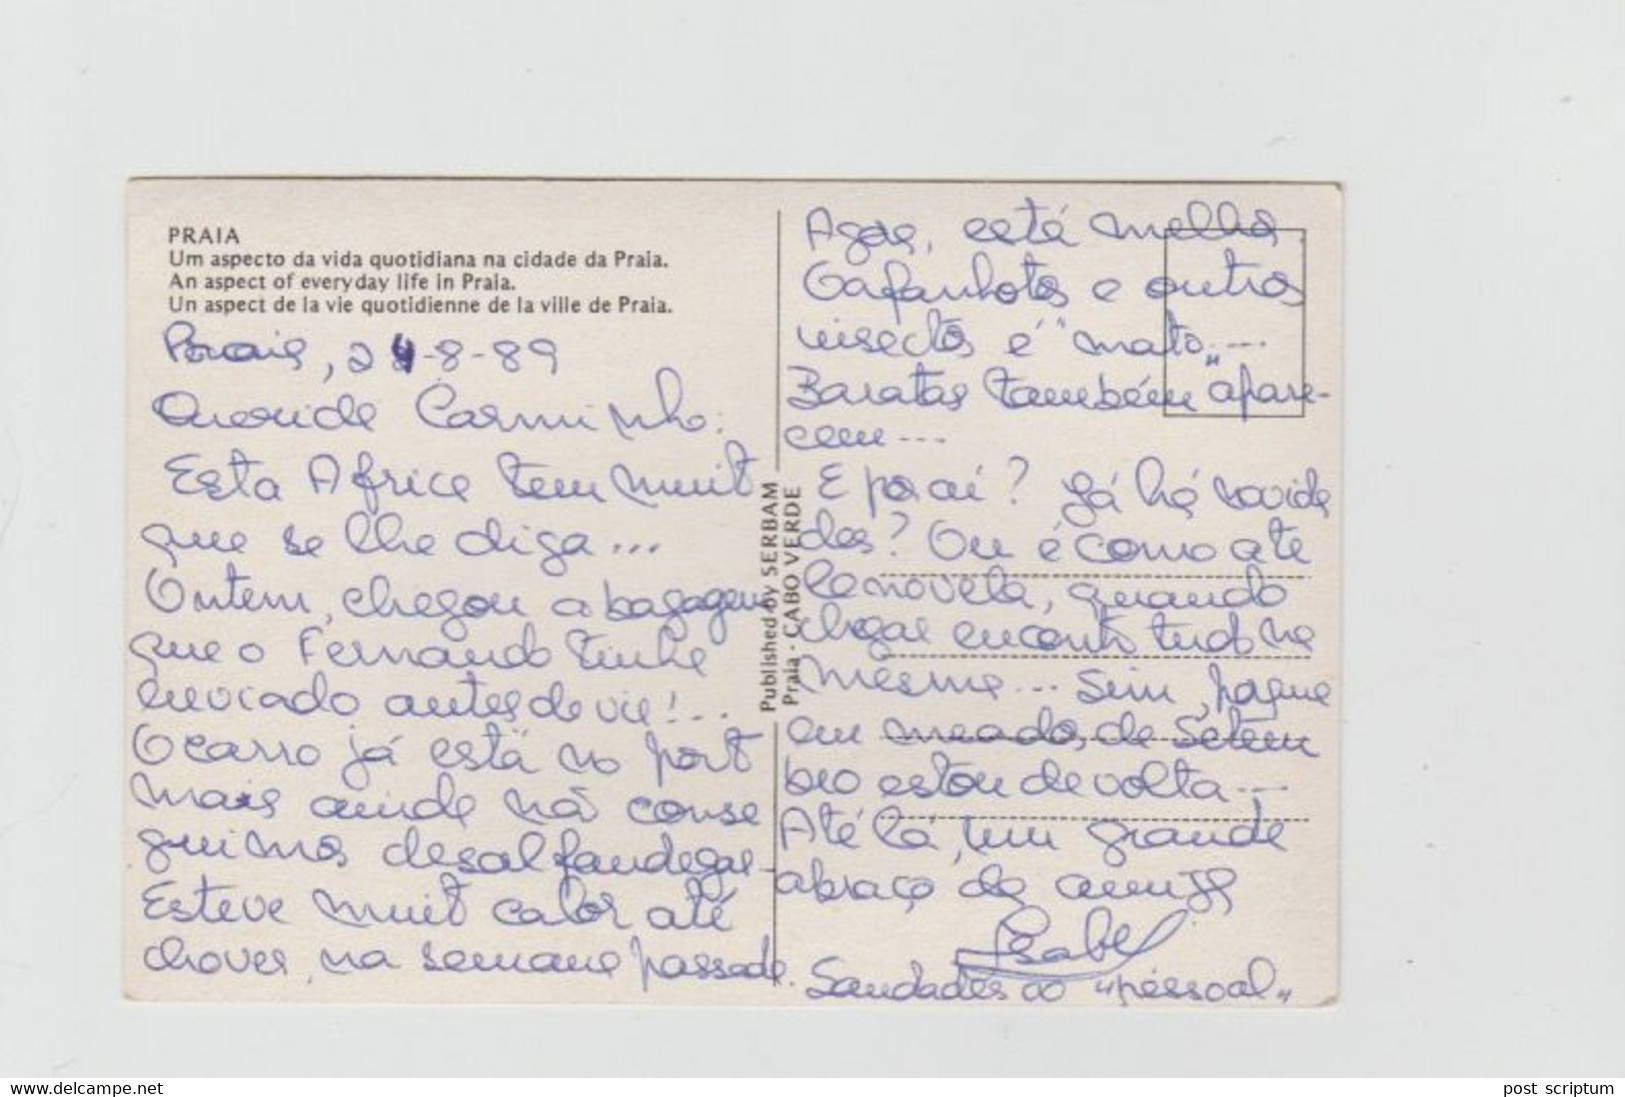 PRAIA
Um aspecto da vida quotidiana na cidade da Praia.
An aspect of everyday life in Praia.
Un aspect de la vie quotidienne de la ville de Praia.
Praia, 24-8-89
Querida Carminho:
Esta Africa tem muito
que se lhe diga...
Ontem, chegou a bagagem
que o Fernando tinha
enviado antes de vir!...
O carro já está no porto
mas ainda não conse
guimos desalfandegar.
Esteve muito calor até
chover, na semana passada.
Published by SERBAM
Praia - CABO VERDE
Agora, está melhor.
Gafanhotos e outros
insectos é "mato"...
Baratas também apare-
cem...
E por aí? Já há novida
des? Ou é como até
la novela, quando
chegar encontro tudo na
mesma... Sim, porque
em meados de Setem
bro estou de volta...
Até lá, um grande
abraço da amiga
Isabel
Saudades ao "pessoal"
www.delcampe.net
post scriptum